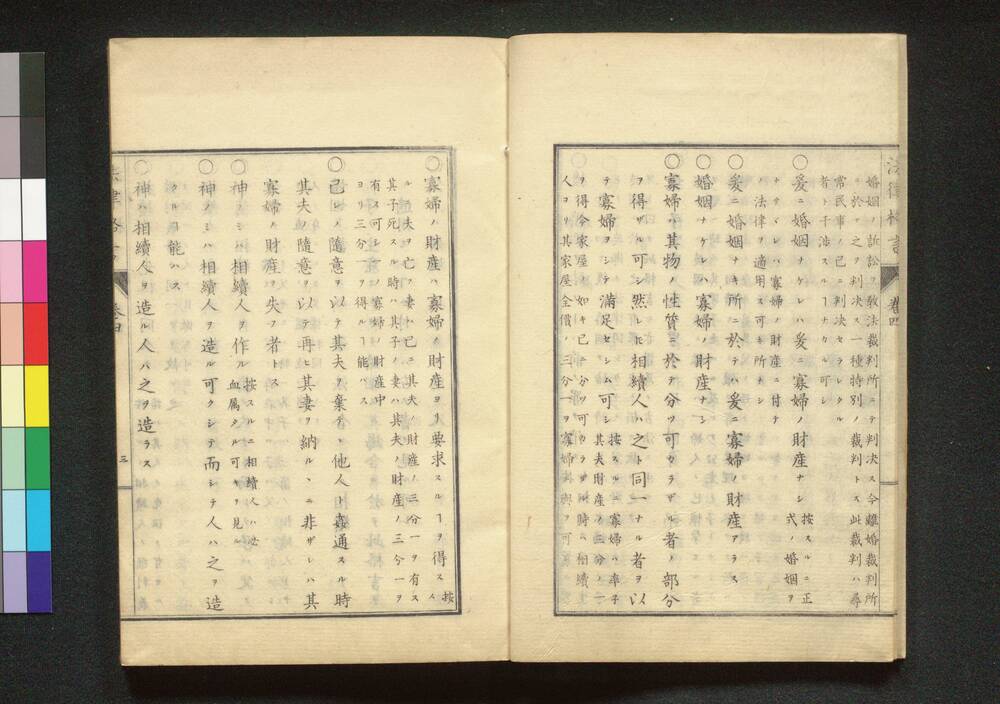 婚姻ノ訴訟ヲ教法裁判所ニテ判决ス今離婚裁判所
ニ於テ之ヲ判决ス一種特別ノ裁判トス此裁判ハ尋
常民事ノ已ニ判决セラレタル
者ト干渉スルヿナカル可シ
○爰ニ婚姻ナケレハ爰ニ寡婦ノ財産ナシ
按スルニ正
式ノ婚姻ヲ
ナサヾレハ寡婦ノ財産ニ付キ
ノ法律ヲ適用ス可キ所ナシ
○爰ニ婚姻ナキ所ニ於テハ爰ニ寡婦ノ財産アラス
○婚姻ナケレハ寡婦ノ財産ナシ
○寡婦ハ其物ノ性質ニ於テ分ツ可カラザル者ノ部分
ヲ得ザル可シ然レ𪜈相續人ハ之ト同一ナル者ヲ以
テ寡婦ヲシテ滿足セシム可シ
按スルニ寡婦ハ率子
其夫財産ノ三分ノ一
ヲ得今家屋ノ如キ已ニ分ツ可カラザル時ハ相續
人ヨリ其家屋全價ノ三分一ヲ寡婦ニ與フ可
○寡婦ノ財産ハ寡婦ノ財産ヨリ要求スルヿヲ得ス
按
ルニ夫ヲ亡フ妻ハ已ニ其夫ノ財産ノ三分一ヲ有ス
其子死スル時ハ其子ノ妻ハ其夫ノ財産ノ三分一ヲ
有ス可シ此ノ寡婦ノ財産中
ヨリ三分一ヲ得ルヿ能ハス
○己レノ隨意ヲ以テ其夫ヲ棄テヽ他人ト姦通スル時
其夫ノ隨意ヲ以テ再ヒ其妻ヲ納ルヽニ非ザレハ其
寡婦ノ財産ヲ失フ者トス
○神ノミハ相續人ヲ作ル
按スルニ相續人ハ必
血属タル可キヲ見ル
○神ノミハ相續人ヲ造ル可クシテ而シテ人ハ之ヲ造
クル能ハス
○神ハ相續人ヲ造ル人ハ之ヲ造ラス
法律格言
卷四
三